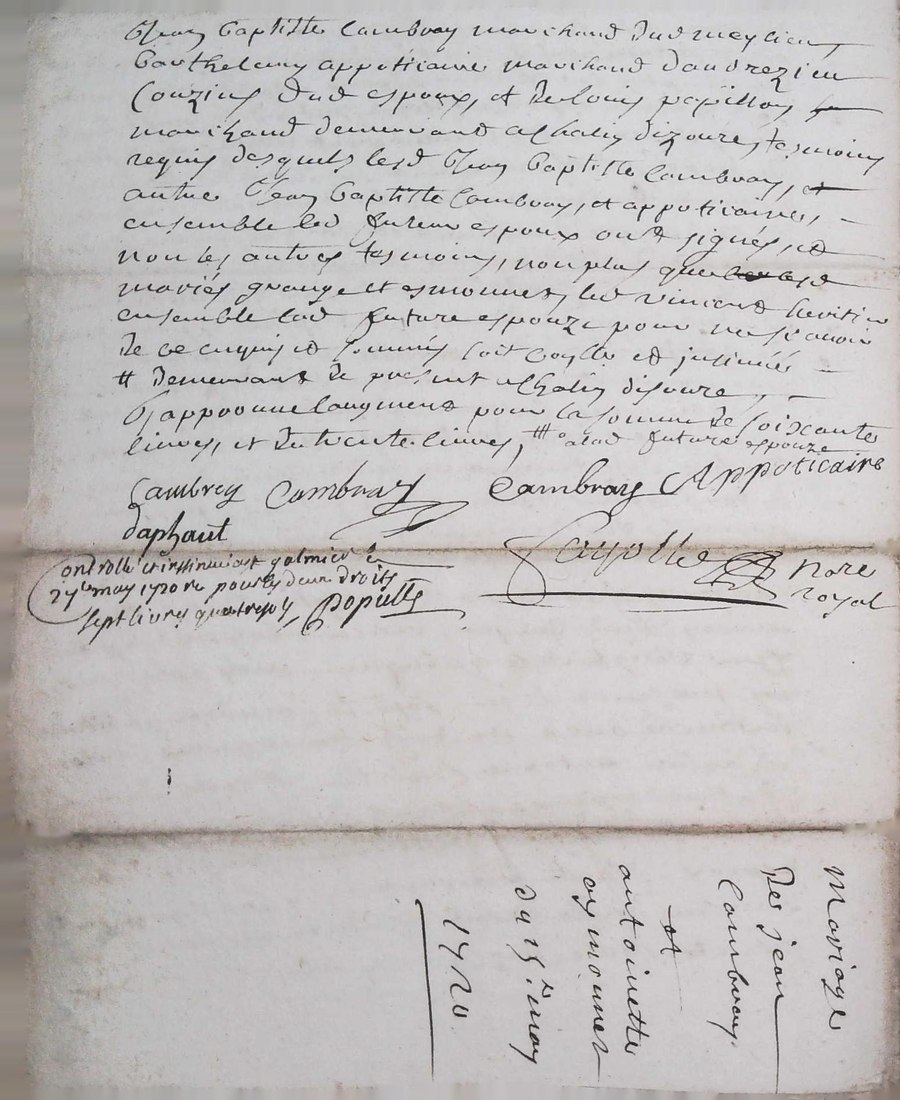 Jean baptiste Cambray marchand dud meylieu
barthelemy appoticaire marchand dandrezieu
Couzins dud espoux, et de louis papillon
marchand demeurant a Chalin dizoure, tesmoins
requis desquels led Jean baptiste Cambray, et
autre Jean baptiste Cambray, et appoticaire,
ensemble led futeur espoux ont signés, et
non les autres tesmoins, non plus que lesd
mariés grange et esmonnet, led vincent
ensemble lad future espouze pour ne scavoir
de ce enquis et sommés soit et insinué
# demeurant de present a Chalin disoure,
Japprouve laugment pour la somme de soixante
livres, et de trente livres, # a lad future espouze
Cambrey Cambray Cambray Appoticaire
daphaut
Controllé et insinué a st galmier le
may 1720 re pour les deux droits
sept livres quatre sols,
Nore
royal
Mariage
De jean
Cambray
et
antoinette
aymonnet
du may
1720